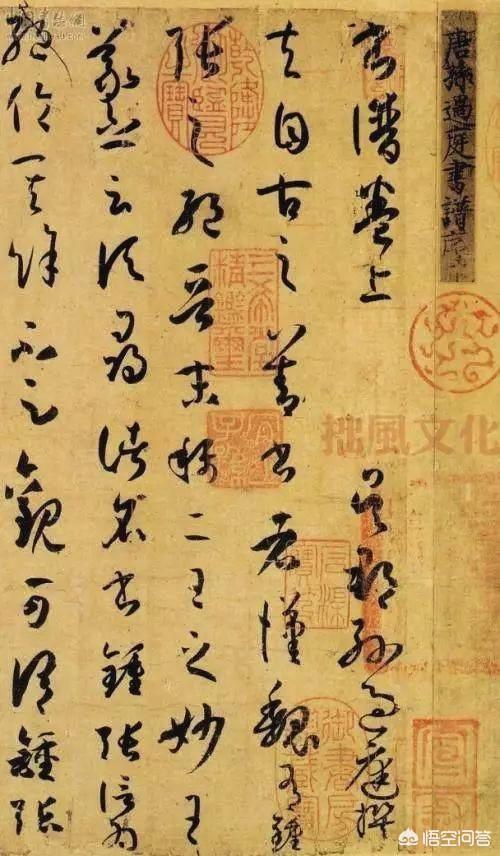 唐孫過庭書譜序
書譜卷上
吳郡孫過庭撰
夫自古之善書者漢魏有鍾
張之絕晉末稱二王之妙王
羲之云頃尋諸名書鍾張信為
絕倫其餘不足觀可謂鍾張
拙風文化
悟空问答